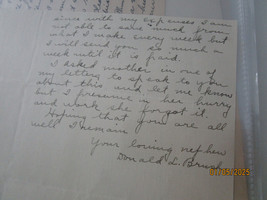 sions with my expenses I am
not able to save much from
what I make every week but
I will send you so much a
week until it is paid.
I asked mother in one of
my letters to speak to you
about this and let me know
but I presume in her hurry
and work she forgot it.
Hoping that you are all
well I remain
Your loving nephew
Donald L. Brush
01/05/2025